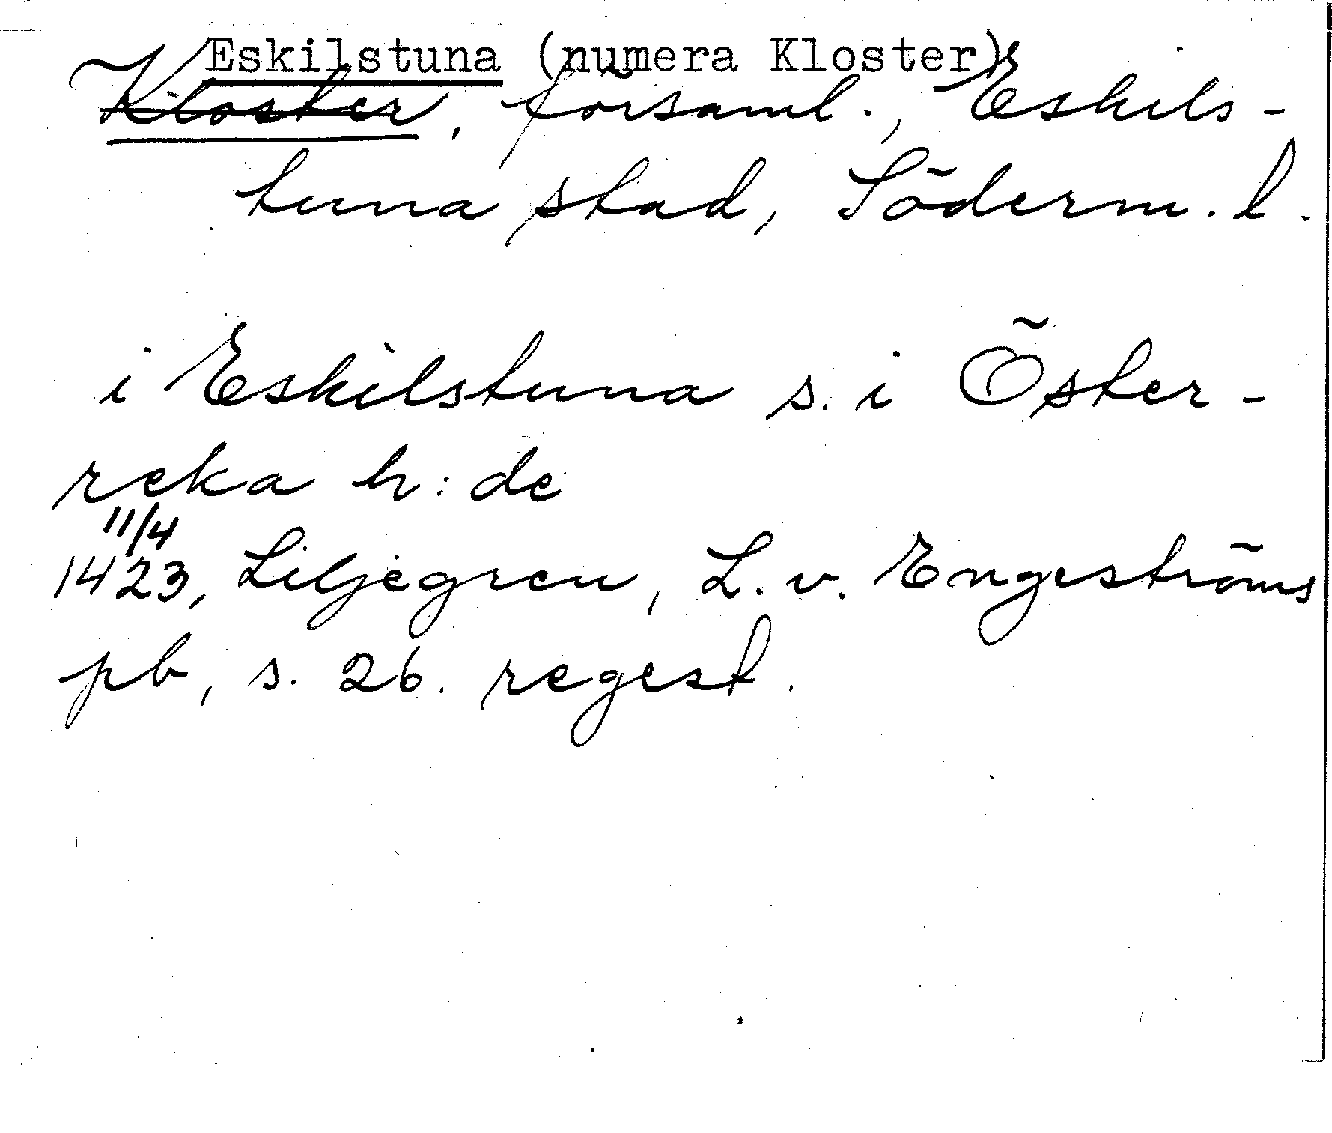 Eskilstuna (numera Kloster)
Kloster, församl., Eskils-
tuna stad, Söderm. l.
i Eskilstuna s. i Öster-
reka h:de
11/4
1423, Liljegren, L. v. Engeströms
pb, s. 26. regest.